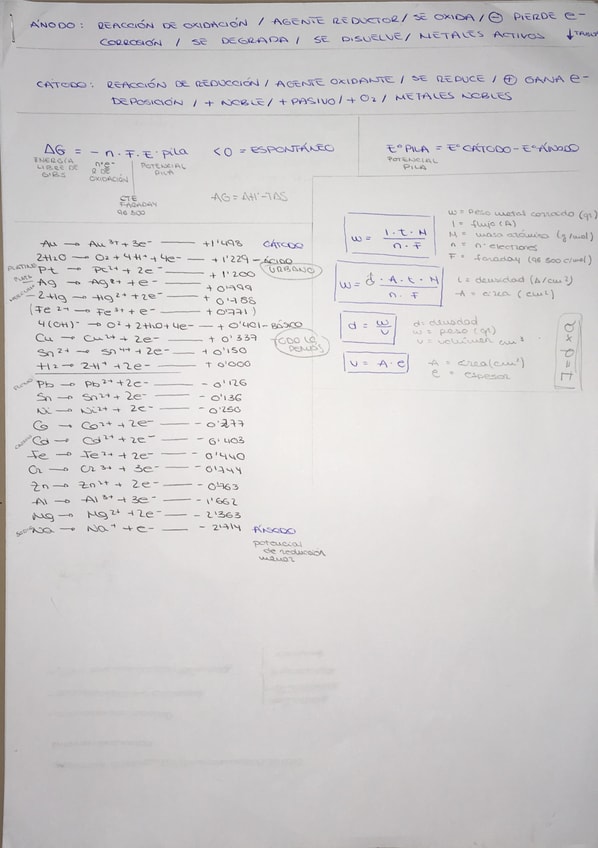 ÁNODO: REACCIÓN DE OXIDACIÓN / AGENTE REDUCTOR / SE OXIDA / ⊖ PIERDE e-
CORROSIÓN / SE DEGRADA / SE DISUELVE / METALES ACTIVOS ↓
CÁTODO: REACCIÓN DE REDUCCIÓN / AGENTE OXIDANTE / SE REDUCE / ⊕ GANA e-
DEPOSICIÓN / + NOBLE / + PASIVO / + O2 / METALES NOBLES
ΔG = - n · F · E pila <0 = ESPONTÁNEO
ENERGÍA LIBRE DE GIBS
nº e- R DE OXIDACIÓN
CTE FARADAY 96 500
POTENCIAL PILA
ΔG = ΔH - TΔS
E° PILA = E° CÁTODO - E° ÁNODO
POTENCIAL PILA
Au → Au3+ + 3e- — +1'498 CÁTODO
2H2O → O2 + 4H+ + 4e- — +1'229 - ÁCIDO
URBANO
PLATINO Pt → Pt2+ + 2e- — +1'200
PLATA Ag → Ag+ + e- — +0'799
MERCURIO 2Hg → Hg2+ + 2e- — +0'788
(Fe2+ → Fe3+ + e- — +0'771)
4(OH)- → O2 + 2H2O + 4e- — +0'401 - BÁSICO
Cu → Cu2+ + 2e- — +0'337
TODO LO DEMÁS
Sn2+ → Sn4+ + 2e- — +0'150
H2 → 2H+ + 2e- — +0'000
PLOMO Pb → Pb2+ + 2e- — -0'126
Sn → Sn2+ + 2e- — -0'136
Ni → Ni2+ + 2e- — -0'250
Co → Co2+ + 2e- — -0'277
CADMIO Cd → Cd2+ + 2e- — -0'403
Fe → Fe2+ + 2e- — -0'440
Cr → Cr3+ + 3e- — -0'744
Zn → Zn2+ + 2e- — -0'763
Al → Al3+ + 3e- — -1'662
Mg → Mg2+ + 2e- — -2'363
SODIO Na → Na+ + e- — -2'714 ÁNODO
potencial
de reducción
menor
w = I · t · M / n · F
w = Peso metal corroído (gr)
I = flujo (A)
M = masa atómica (g/mol)
n = nº electrones
F = faraday (96 500 c/mol)
w = i · A · t · M / n · F
i = densidad (A/cm2)
A = área (cm2)
d = w/v
d: densidad
w = peso (gr)
v = volumen cm3
v = A · e
A = área (cm2)
e = espesor